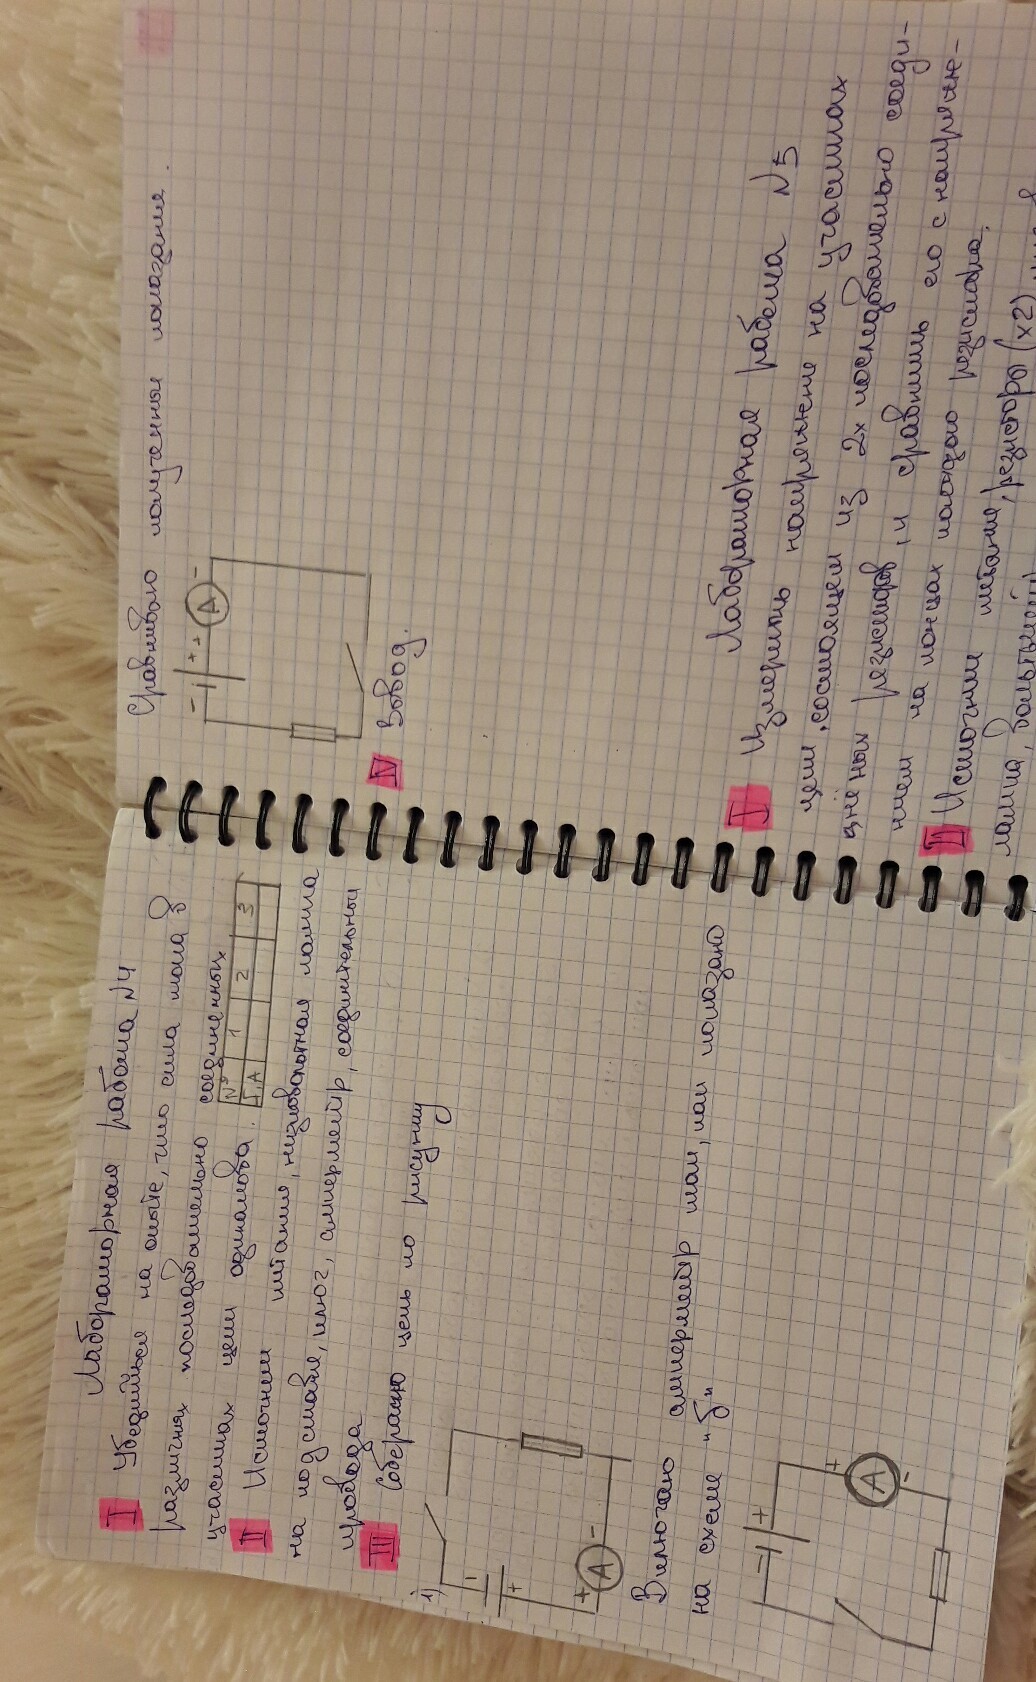 Лабораторная работа №4
I Убедиться на опыте, что сила тока в
различных последовательно соединенных
участках цепи одинакова.
№ 1 2 3
I, A
II Источник питания, низковольтная лампа
на подставке, ключ, амперметр, соединительные
провода
III Собераю цепь по рисунку
1)
- +
+ A -
Включаю амперметр так, как показано
на схеме "б"
- +
+ A -
Сравниваю полученные показания.
- + + A -
IV Вывод.
Лабораторная работа №5
I Измерить напряжение на участках
цепи, состоящем из 2х последовательно соеди-
нённых резисторов, и сравнить его с напряже-
нием на концах каждого резистора.
II Источник питания, резисторы (х2)
лампа, вольтметр